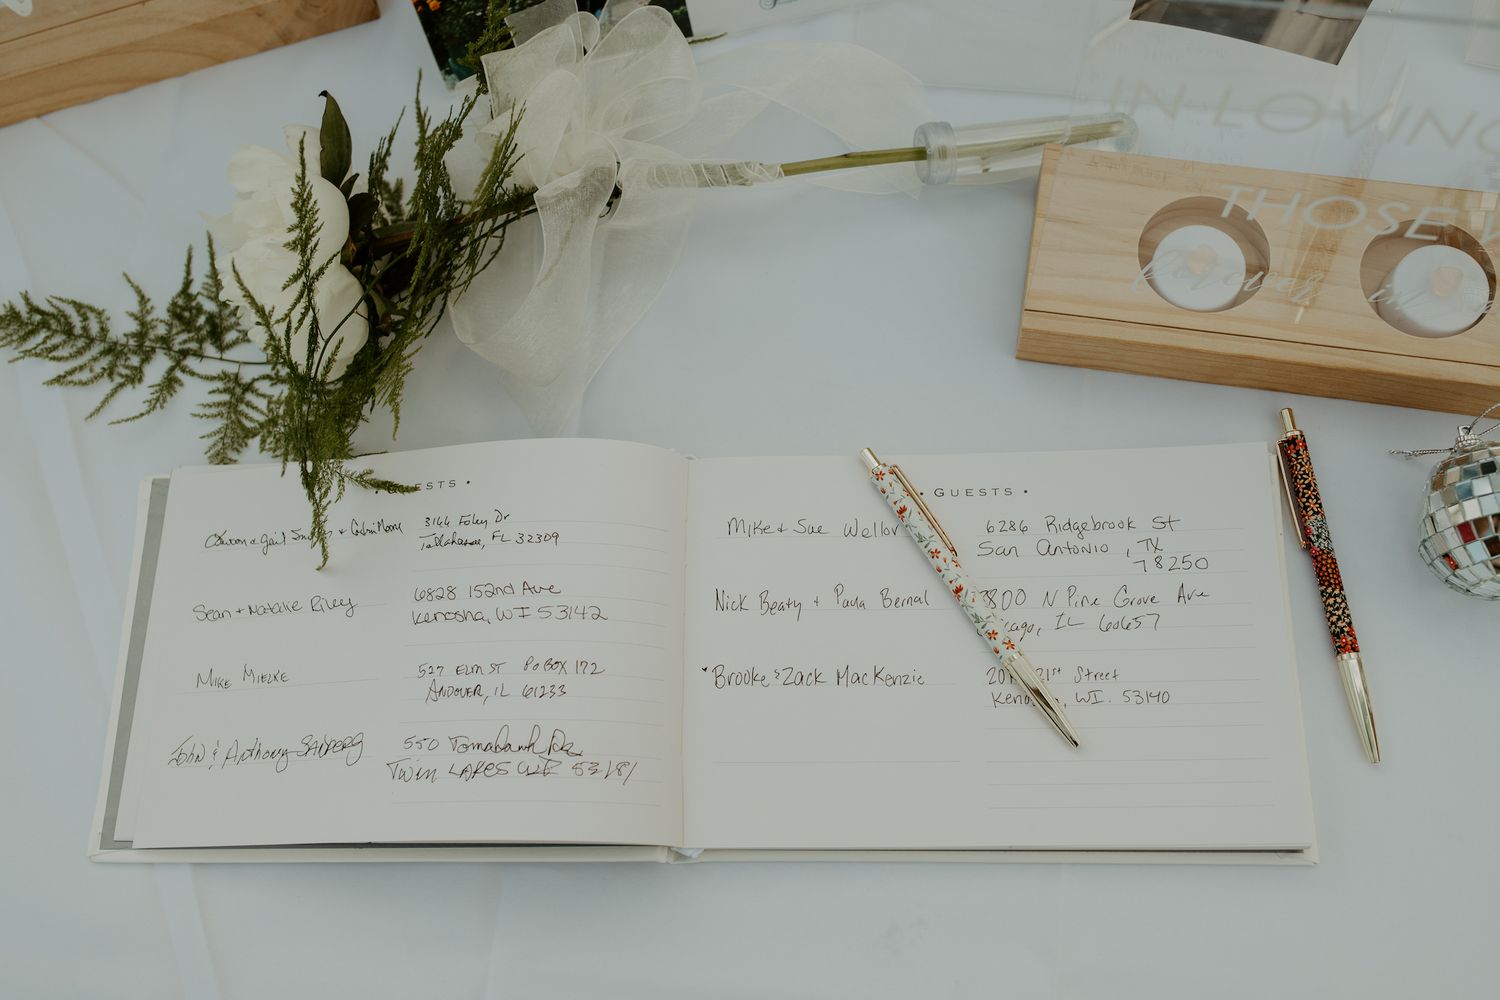 IN LOVING
THOSE
forever in
GUESTS •
• GUESTS •
& Gail & Colin Moore
3144 Foley Dr
Tallahassee, FL 32309
Sean + Natalie Riley
6828 152nd Ave
Kenosha, WI 53142
MIKE MIELKE
527 ELM ST PO BOX 172
ANDOVER, IL 61233
John & Anthony
550 Dr.
Twin LAKES WI 53181
Mike & Sue
6286 Ridgebrook St
San Antonio, TX
78250
Nick Beaty + Paula Bernal
800 N Pine Grove Ave
cago, IL 60657
Brooke & Zack MacKenzie
20 21st Street
Keno a, WI. 53140